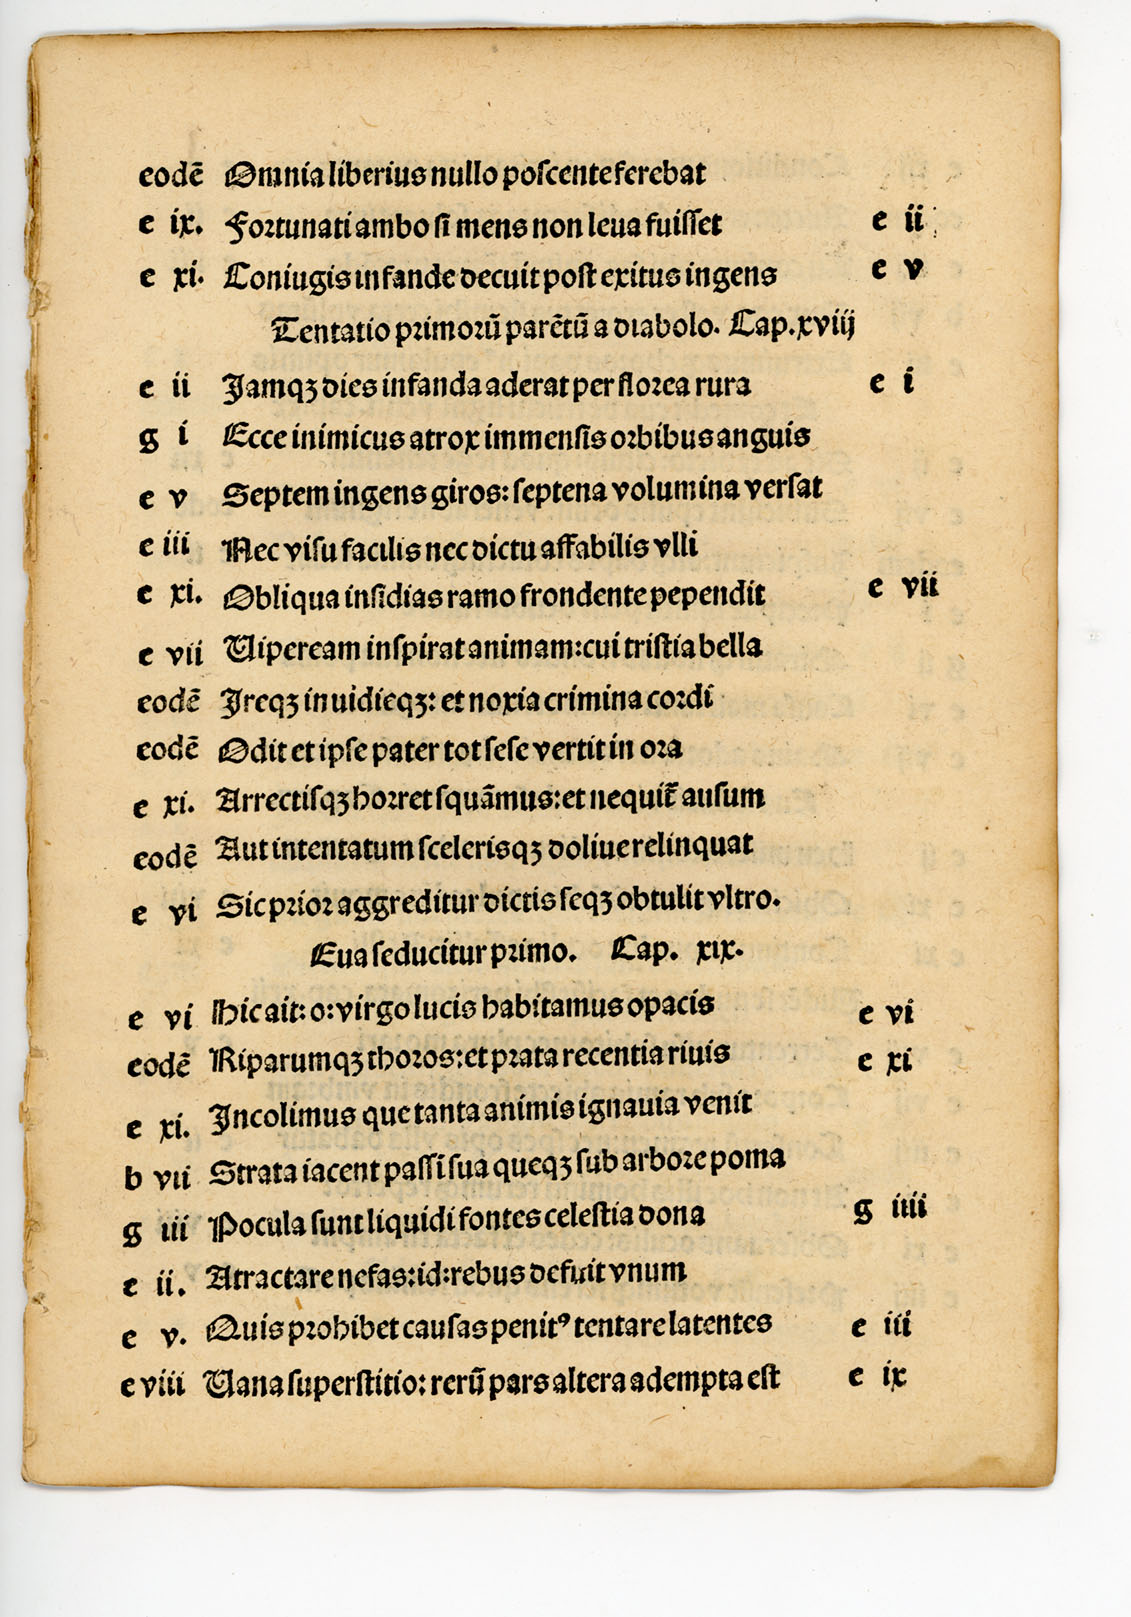 eodē Omnia liberius nullo poscente ferebat
e ix. Fortunati ambo si mens non leua fuisset e ii
e xi. Coniugis infande decuit post exitus ingens e v
Tentatio primorū parētū a diabolo. Cap. xviij
e ii Jamqꝫ dies infanda aderat per florea rura e i
g i Ecce inimicus atrox immensis orbibus anguis
e v Septem ingens giros: septena volumina versat
e iii Nec visu facilis nec dictu affabilis vlli
e xi. Obliqua insidias ramo frondente pependit e vii
e vii Uipeream inspirat animam: cui tristia bella
eodē Jreqꝫ inuidieqꝫ: et noxia crimina cordi
eodē Odit et ipse pater tot sese vertit in ora
e xi. Arrectisqꝫ horret squāmus: et nequit̄ ausum
eodē Aut intentatum scelerisqꝫ doliue relinquat
e vi Sic prior aggreditur dictis seqꝫ obtulit vltro.
Eua seducitur primo. Cap. xix.
e vi Hic ait: o: virgo lucis habitamus opacis e vi
eodē Riparumqꝫ thoros: et prata recentia riuis e xi
e xi. Incolimus que tanta animis ignauia venit
b vii Strata iacent passi sua queqꝫ sub arbore poma
g iii Pocula sunt liquidi fontes celestia dona g iiii
e ii. Atractare nefas: id: rebus defuit vnum
e v. Quis prohibet causas penitꝰ tentare latentes e iii
e viii Uana superstitio: rerū pars altera adempta est e ix